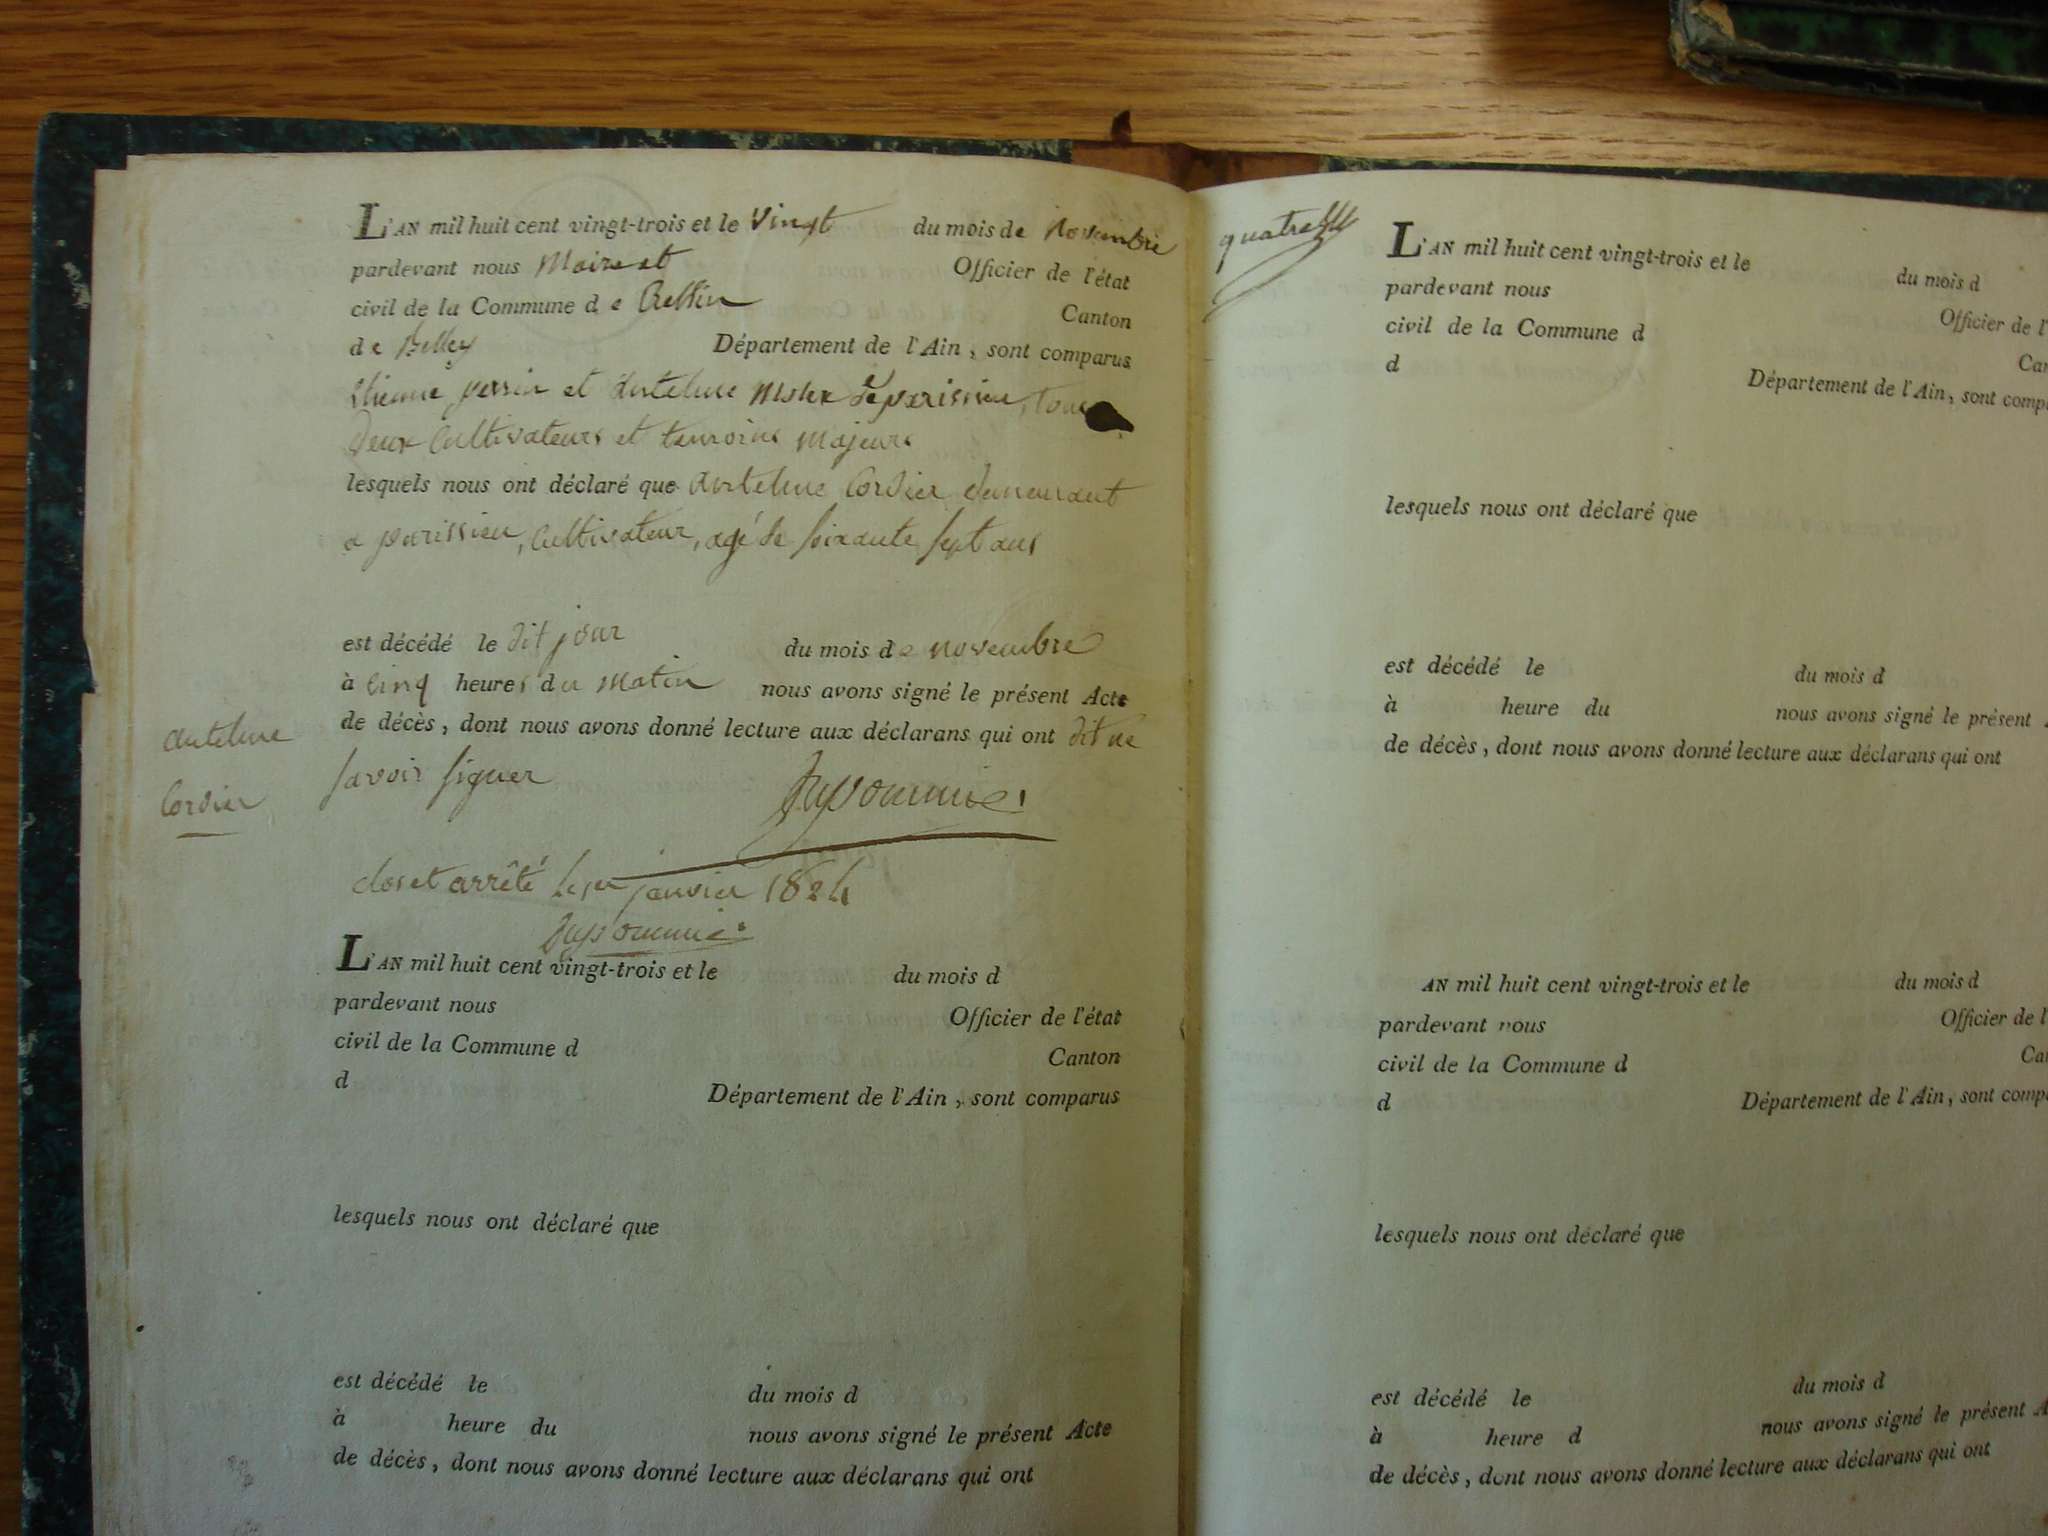 L'AN mil huit cent vingt-trois et le vingt du mois de novembre
pardevant nous Maire et Officier de l'état
civil de la Commune de Canton
de Belley Département de l'Ain, sont comparus
perrin et anteleme de parissieu, tous
Deux Cultivateurs et temoins majeurs
lesquels nous ont déclaré que anteleme Cordier demeurant
a parissieu, Cultivateur, agé de soixante sept ans
est décédé le dit jour du mois de novembre
à cinq heures du matin nous avons signé le présent Acte
de décès, dont nous avons donné lecture aux déclarans qui ont dit ne
savoir signer
anteleme
Cordier
clos et arrêté le 1er janvier 1824
L'AN mil huit cent vingt-trois et le du mois d
pardevant nous Officier de l'état
civil de la Commune d Canton
d Département de l'Ain, sont comparus
lesquels nous ont déclaré que
est décédé le du mois d
à heure du nous avons signé le présent Acte
de décès, dont nous avons donné lecture aux déclarans qui ont
quatre
L'AN mil huit cent vingt-trois et le du mois d
pardevant nous Officier de l'
civil de la Commune d Ca
d Département de l'Ain, sont comp
lesquels nous ont déclaré que
est décédé le du mois d
à heure du nous avons signé le présent A
de décès, dont nous avons donné lecture aux déclarans qui ont
AN mil huit cent vingt-trois et le du mois d
pardevant nous Officier de l'
civil de la Commune d Ca
d Département de l'Ain, sont comp
lesquels nous ont déclaré que
est décédé le du mois d
à heure d nous avons signé le présent A
de décès, dont nous avons donné lecture aux déclarans qui ont